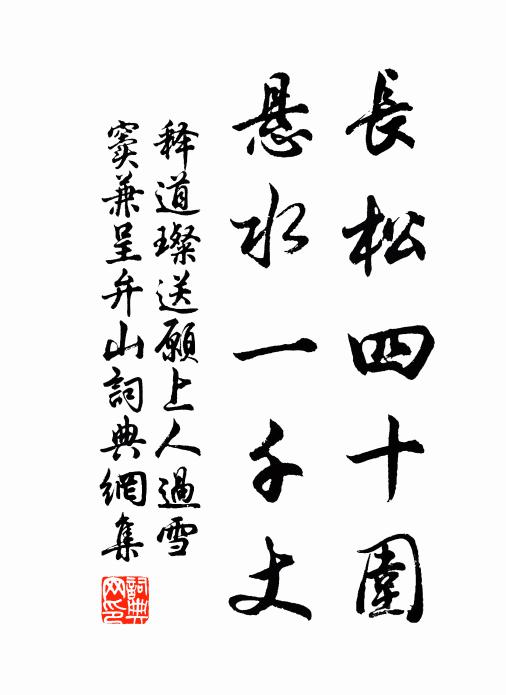 長松四十圍
悬水一千丈
释道璨送願上人過雪
窦兼呈弁山詞典網集
詞典
网印